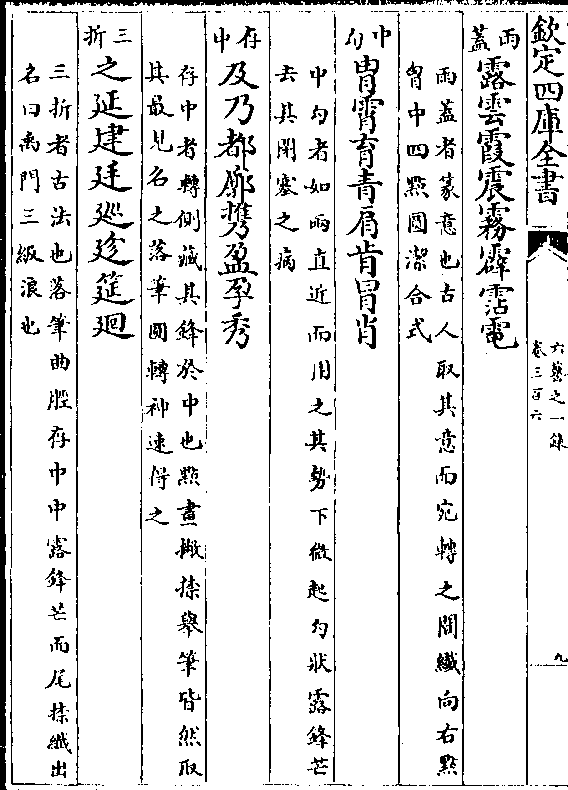 欽定四庫全書
六藝之一錄
卷三百六
九
雨蓋
露雲霞震霧霹霑電
雨蓋者篆意也古人取其意而宛轉之間纎向右㸃
胷中四㸃圓潔合式
中勾
胄霄育青肩肯冐肖
中勾者如兩直近而用之其勢下微起勾狀露鋒芒
去其閉塞之病
存中
及乃都廊携盈孕秀
存中者轉側藏其鋒於中也㸃畫撇捺舉筆皆然取
其最見名之落筆圓轉神速得之
三折
之延建廷廵廻
三折者古法也落筆曲腔存中中露鋒芒而尾捺纎出
名曰禹門三級浪也